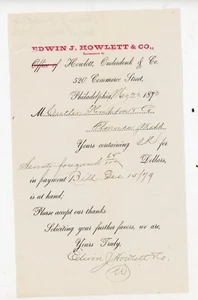 EDWIN J. HOWLETT & CO.,
Successors to
Office of Howlett, Onderdonk & Co.
520 Commerce Street,
Philadelphia,
M
Florence, Mass
Yours containing
Seventy four and Dollars,
in payment Bill Dec 15/79
is at hand;
Please accept our thanks.
Soliciting your further favors, we are,
Yours Truly,
Edwin J Howlett & Co